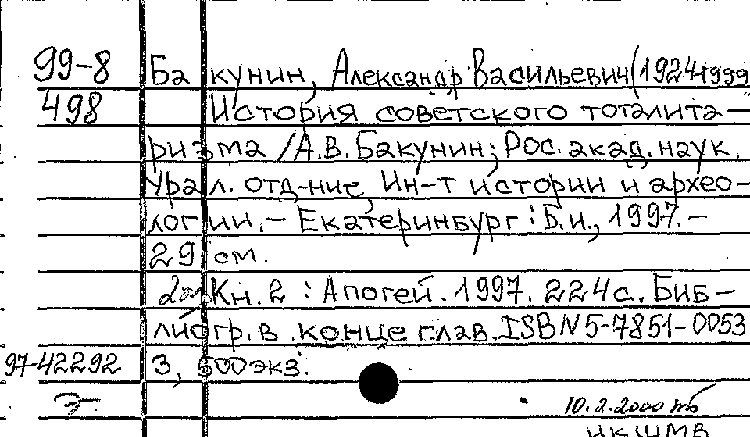 99-8 Бакунин, Александр Васильевич (1924-1999
498 История советского тоталита-
ризма / А.В. Бакунин; Рос. акад. наук.
Урал. отд-ние, Ин-т истории и архео-
логии. - Екатеринбург : Б.и., 1997. -
29 см.
Кн. 2 : Апогей. 1997. 224 с. Биб-
лиогр. в конце глав. ISBN 5-7851-0053
97-42292 3, 500 экз.
10.2.2000